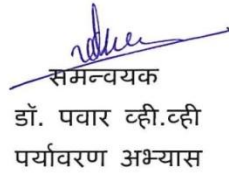 समन्वयक
डॉ. पवार व्ही.व्ही
पर्यावरण अभ्यास